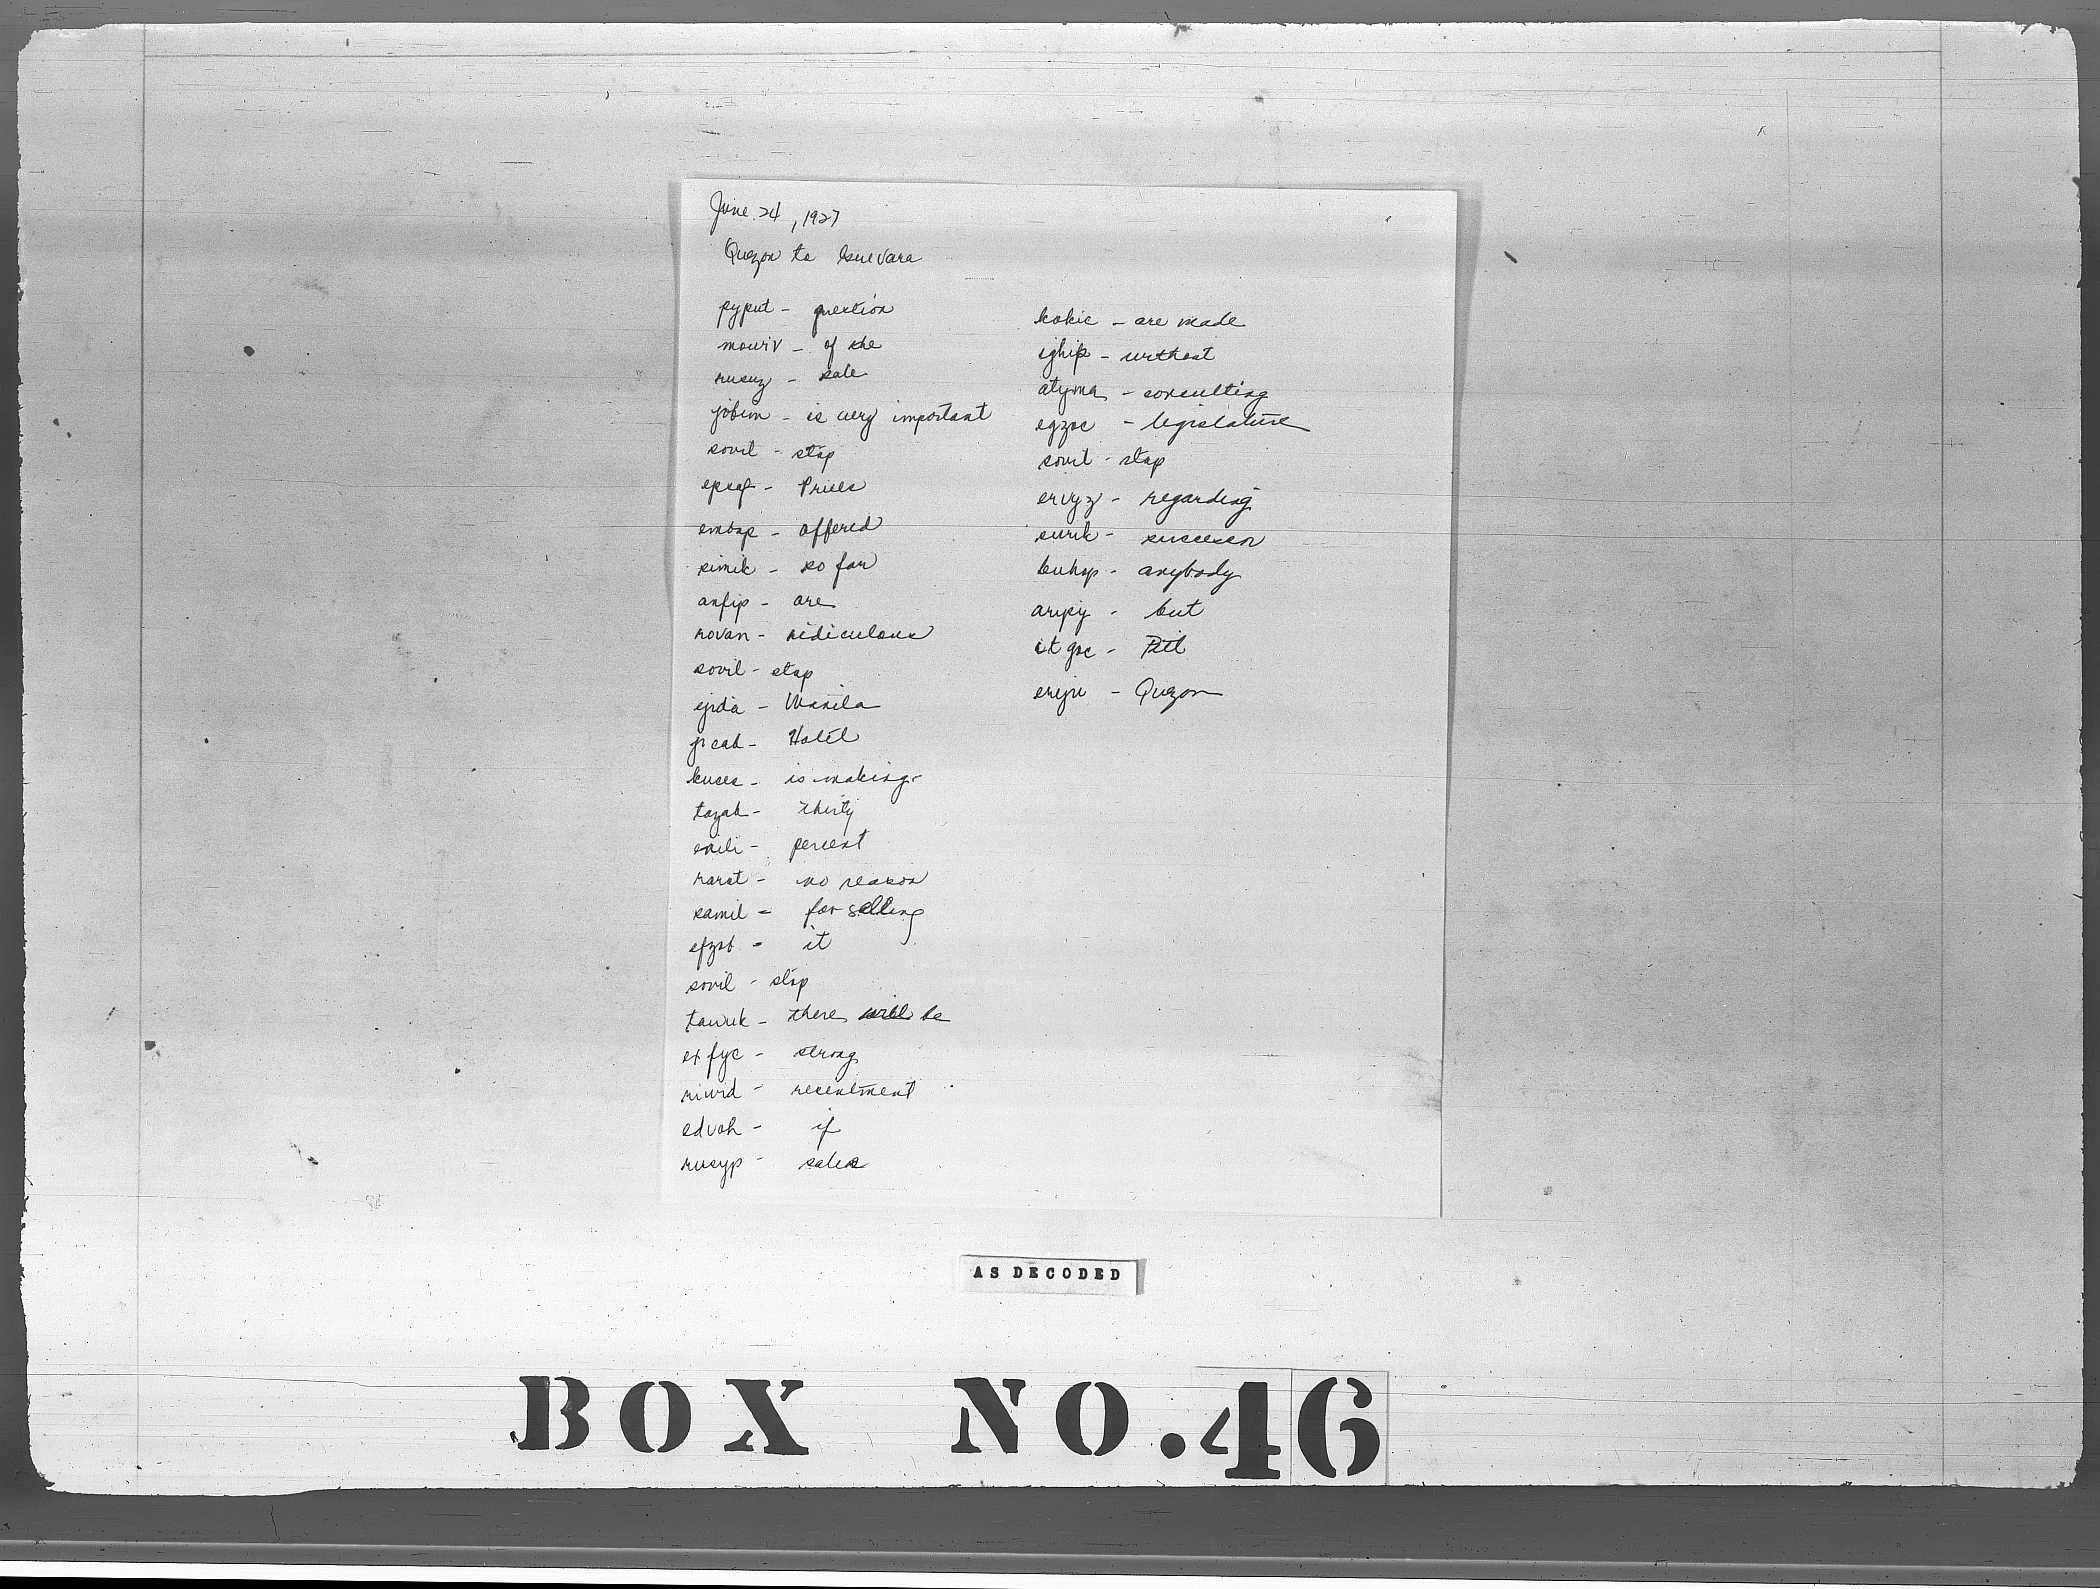 June 24, 1927
Quezon to Guevara
pyput - question
mouriv - of the
rusuz - sale
jobum - is very important
sovil - stop
epsaf - Prices
embap - offered
simik - so far
anfip - are
rovan - ridiculous
sovil - stop
ejida - Manila
jicab - Hotel
kuses - is making
tazab - thirty
enili - percent
rarat - no reason
samil - for selling
efzob - it
sovil - stop
tawuk - there will be
exfyc - strong
riwid - resentment
edvoh - if
rusyp - sales
kokic - are made
ighip - without
atyma - consulting
egzoc - legislature
sovil - stop
ervyz - regarding
surik - successor
buhop - anybody
arypy - but
itgoc -
eryju - Quezon
AS DECODED
BOX NO. 46